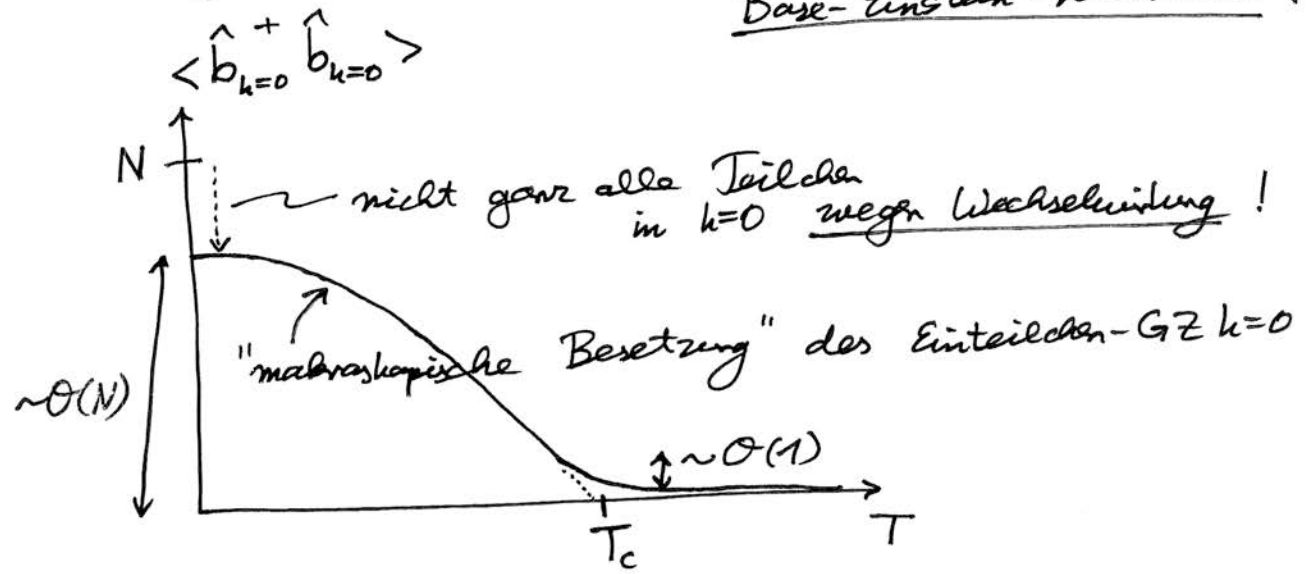 Bose-Einstein
< b̂⁺ₖ₌₀ b̂ₖ₌₀ >
N
nicht ganz alle Teilchen
in k=0 wegen Wechselwirkung !
"makroskopische Besetzung" des Einteilchen-GZ k=0
~O(N)
~O(1)
T_c
T